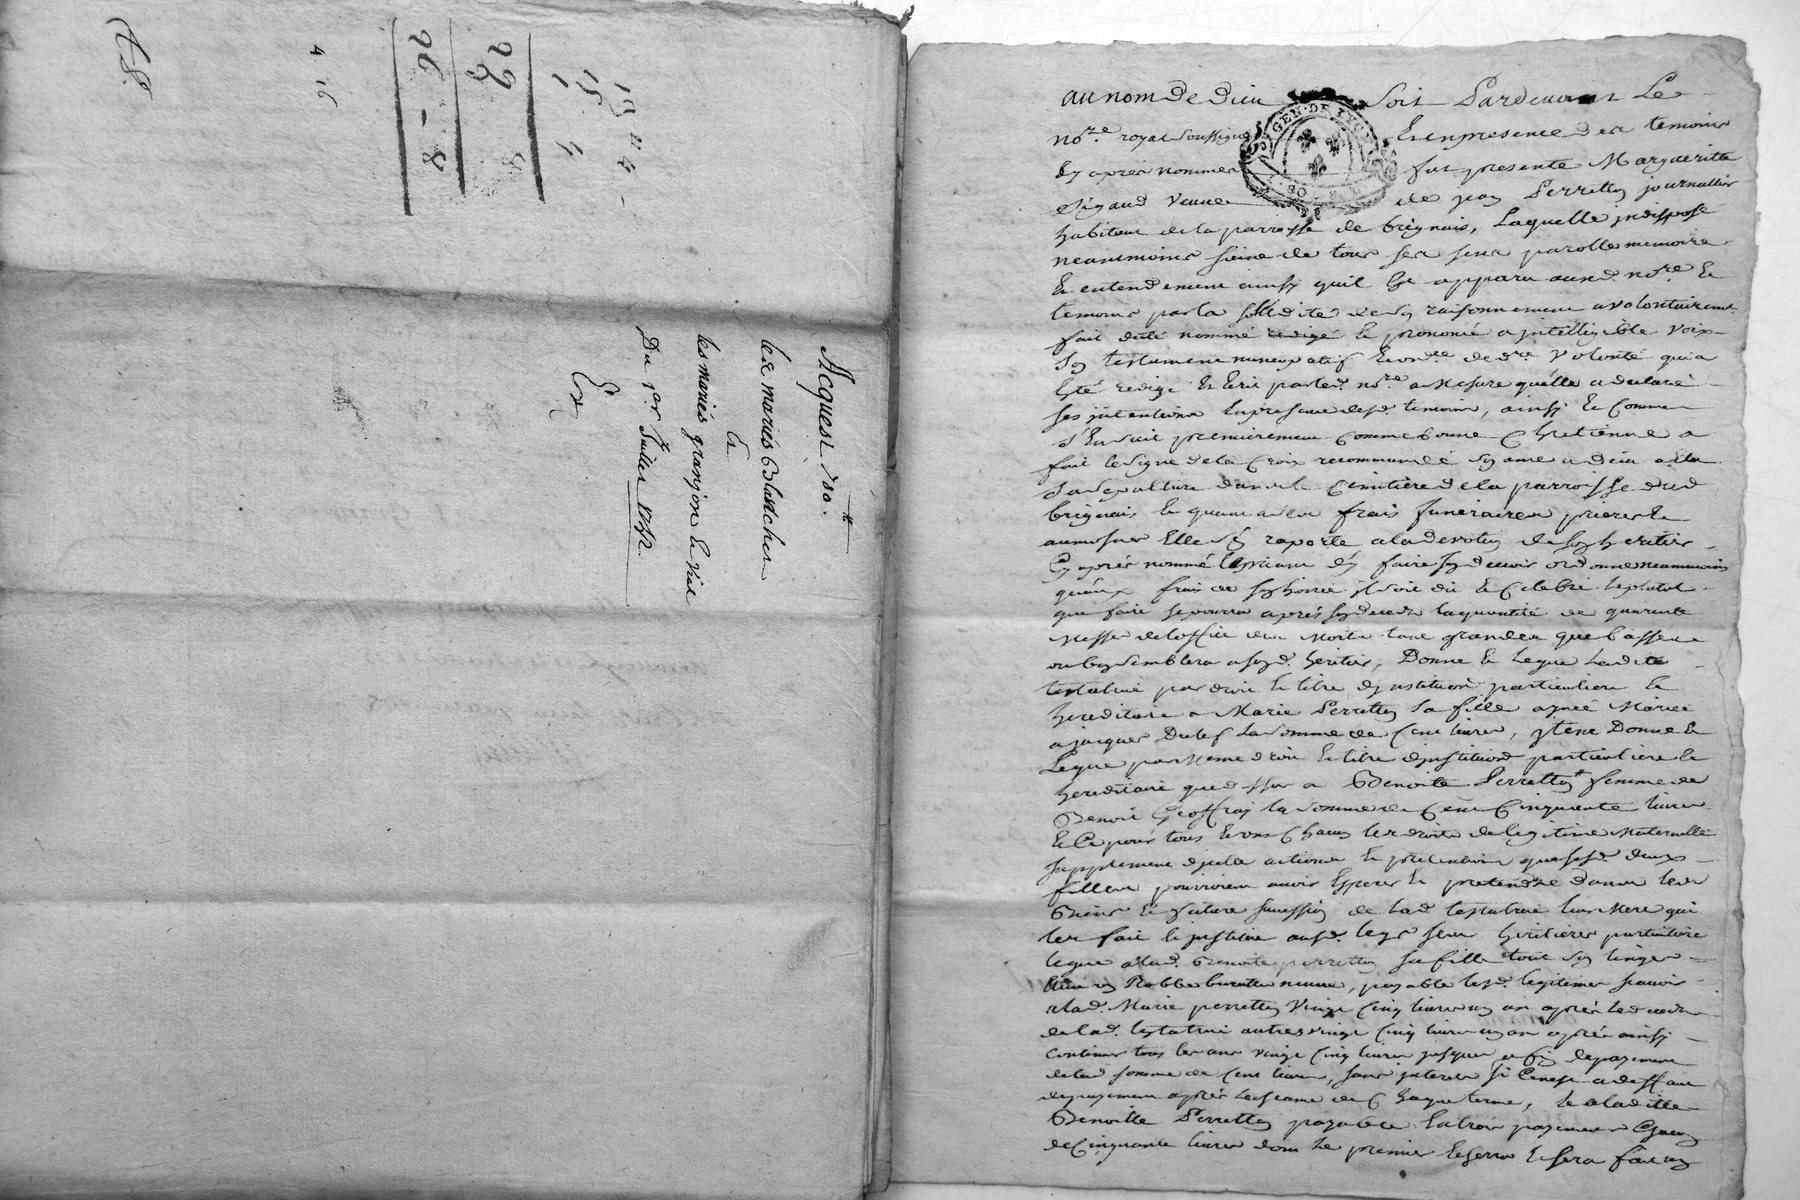 19 " 4
15 4
1
29 8
26 - 8
4 16
Acquest
les mariés Blanchet
Et
les mariés granjon Et vial
Du 1er Juillet
Ex
au nom de dieu soit Pardevant Le
nore royal soussigné Et en presence des temoins
Cy apres nommes fut presente Margueritte
Rigaud veuve de jean Perretton journallier
habitant de la parroisse de brignais, Laquelle indisposé
neanmoins saine de tous ses sens parolle memoire
Et entendement ainsy quil Est apparu aud nore Et
temoins par la solidité de son raisonnement a volontairement
fait dicté nommé redigé Et prononcé a jntelligible voix
son testament nuncupatif Et ordce de dre volonté qui a
Eté redigé Et Ecrit par led. nore a Mesure quelle a declaré
ses jntentions En presence desd. temoins, ainsy Et Comme
s'Ensuit premierement Comme bonne Chretienne a
fait le signe de la Croix recommandé son ame a dieu a Elu
sa sepulture dans le Cimitiere de la parroisse dud
brignais Et quant a ses frais funeraires prieres Et
aumosnes Elle s'En raporte a la devotion de son heritier
Cy aprés nommé le priant d'En faire son devoir ordonne neanmoins
qu'aux frais de son hoirie jl soit dit Et Celebré le plutot
que faire se pourra aprés son deces la quantité de quarante
Messes de l'office des Morts tant grandes que basses
ou bon semblera a sond. heritier, Donne Et Legue Ladite
testatrice par droit Et titre d'jnstitution particuliere Et
hereditaire a Marie Perretton sa fille aynée Mariée
a jacques Dutel La somme de Cent livres, jtem Donne Et
Legue par Meme droit Et titre d'jnstitution particuliere Et
hereditaire que dessus a Benoite Perretton femme de
Benoit Geoffray la somme de Cent Cinquante livres
Et Ce pour tous Et uns Chacun les droits de legitime Maternelle
supplement d'jcelle actions Et pretentions que sesd. deux
filles pourroient avoir Esperer Et pretendre dans les
Biens Et future succession de lad. testatrice leur Mere qui
les fait Et jnstitue ausd. legs ses heritieres particuliere
legue a lad. Benoite perretton sa fille tout son linge
avec une Robbe buratte neuve, payable lesd. legitimes scavoir
a lad. Marie perretton vingt Cinq livres un an aprés le deces
de lad. testatrice autres vingt Cinq livres un an aprés ainsy
continuer tous les ans vingt Cinq livres jusques a fin de payement
de lad somme de Cent livres, sans jnterets si Cenest a deffaut
de payement aprés l'Escheance de Chaque terme, Et a laditte
Benoitte Perretton payable En trois payements Egaux
de Cinquante livres dont Le premier Echerra Et sera fait un